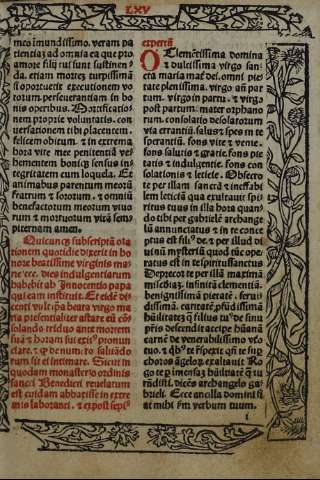 LXV
mea imundissimo. veram pa
tientiaz ad omnia ea que pro
amore filij tui sunt sustinen
da. etiam mortez turpissimā
si oportuerit executionem vo
torum. perseuerantiam in bo
nis operibus. Mortificatio
nem proprie voluntatis. con
uersationem tibi placentem.
felicem obitum. et in extrema
hora vite mee penitentiā ve
hementem bonā sensus in
tegritatem cum loquela. Et
animabus parentum meorū
fratrum et sororum. et omniū
benefactorum meorum viuo
rum et mortuorum vitā sem
piternam amen.
Quicunqz subscriptā ora
tionem quotidie dixerit in ho
nore beatissime virginis ma
rie
dies indulgentiarum
habebit ab Innocentio papa
qui eam instituit. Et eidē di
centi vult ipsa beata virgo ma
ria presentialiter astare eū cō
solando triduo ante mortem
suā et horam sui exitus pronun
ciare.
demum
saluādo
rum sit et intimare. Sicut in
quodam monasterio ordinis
sancti Benedicti reuelatum
est cuidam abbatisse in extre
mis laboranti. et expost sepius
expertū
O Clementissima domina
et dulcissima virgo san
cta maria mater dei. omni pie
tate plenissima. virgo añ par
tum. virgo in partu. et virgo
post partum: mater orphano
rum. consolatio desolatorum
via errantiū. salus et spes in te
sperantiū. fons vite et venie.
fons salutis et gratie. fons pie
tatis et indulgentie. fons con
solationis et leticie. Obsecro
te per illam sanctā et ineffabi
lem leticiā qua exultauit spi
ritus tuus in illa hora quan
do tibi per gabrielē archange
lū annunciatus et in te conce
ptus est filius dei. et per illud di
uinū mysteriū quod tūc ope
ratus est in te spiritussanctus
Deprecor te per illā maximā
misericordiam. infinitā clementiā.
benignissimā pietatē.
dissimā. caritatē. profūdissimā
humilitatez
filius tuus de sinu
patris descendit accipe humanā
carnē de venerabilissimo vētre
tuo.
te respexit
te super
choros angelorum exaltauit. Ro
go te per immensaz humilitatē
respondisti. dicēs archangelo ga
brieli. Ecce ancilla domini fi
at mihi secundum verbum tuum.
i